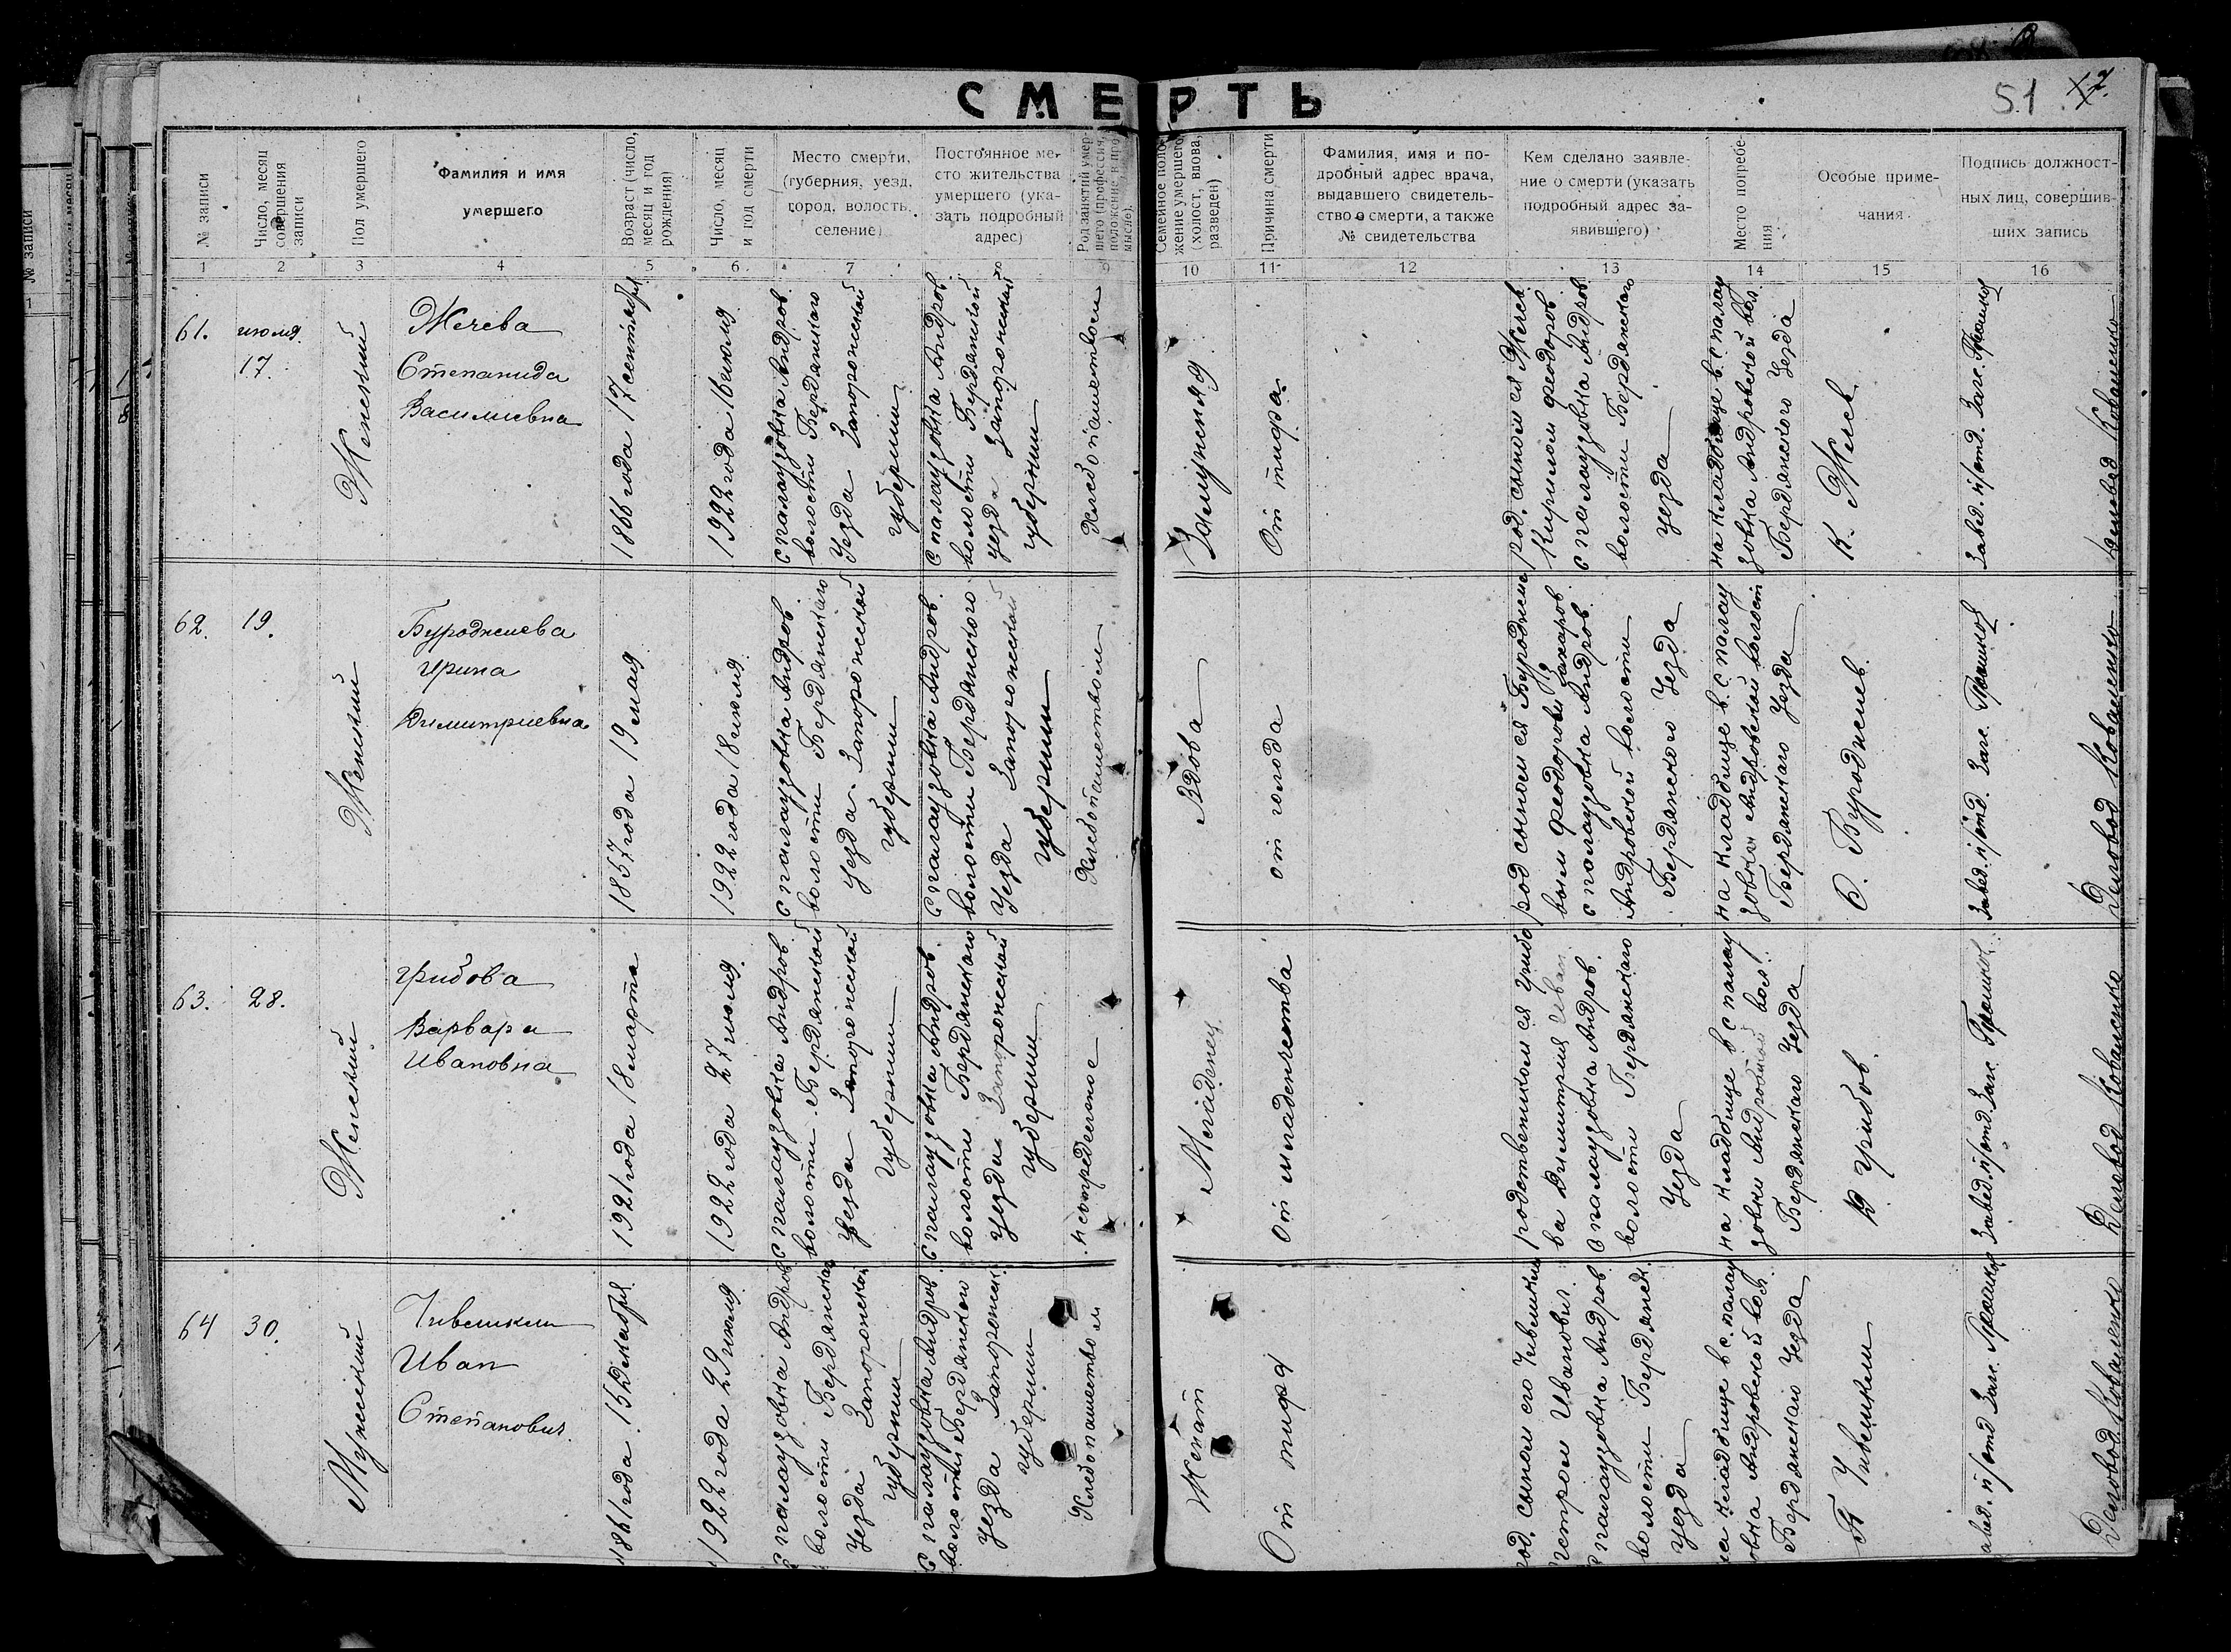 СМЕРТЬ
51 17.
№ записи
Число, месяц совершения записи
Пол умершего
Фамилия и имя
умершего
Возраст (число, месяц и год рождения)
Число, месяц и год смерти
Место смерти,
(губерния, уезд,
город, волость,
селение)
Постоянное ме-
сто жительства
умершего (ука-
зать подробный
адрес)
Род занятий умер-
шего (профессия,
положение в про-
мысле).
Семейное поло-
жение умершего
(холост, вдова,
разведен)
Причина смерти
Фамилия, имя и по-
дробный адрес врача,
выдавшего свидетель-
ство о смерти, а также
№ свидетельства
Кем сделано заявле-
ние о смерти (указать
подробный адрес за-
явившего)
Место погребе-
ния
Особые приме-
чания
Подпись должност-
ных лиц, совершив-
ших запись
1 2 3 4 5 6 7 8 9 10 11 12 13 14 15 16
61.
июля
17.
Женский
Жечева
Степанида
Василиевна
1866 года 17 сентября
1922 года 16 июля
с палаузовка Андров.
волости Бердянскаго
Уезда Запорожской
губернии
с палаузовка Андров.
волости Бердянской
уезда Запорожской
губернии
Хлебопашеством
Замужняя
От тифа
род. сыном ея Жечев
Кирилом феодоров.
с палаузовка Андров
волости Бердянскаго
уезда
на кладбище в с палау
зовка Андровской вол.
Бердянского Уезда
К. Жечев
Завед. п/отд. Загс.
Деловод Коваленко
62.
19.
Женский
Буроджиева
Ирина
Димитриевна
1857 года 19 мая
1922 года 18 июля
с палаузовка Андров.
волости Бердянскаго
Уезда Запорожской
губернии
с палаузовка Андров.
волости Бердянского
Уезда Запорожской
губернии
Хлебопашеством
Вдова
от голода
род сыном ея Буроджие
вым феодоров Захаров
с палаузовка Андров.
Андровской волости
Бердянского Уезда
на кладбище в. с палау
зовка Андровской волост
Бердянскаго Уезда
Буроджиев.
Завед. п/отд. Загс.
Деловод Коваленко
63.
28.
Женский
Грибова
Варвара
Ивановна
1921 года 18 марта
1922 года 27 июля.
с палаузовка Андров.
волости Бердянской
уезда Запорожской
губернии
с палаузовка Андров.
волости Бердянскаго
Уезда Запорожской
губернии
неопределенное
Младенец
От младенчества
родственником ея грибо
ва Димитрия Иван
с палаузовка Андров.
волости Бердянскаго
Уезда
на кладбище в с палау
зовки Андровской вол.
Бердянскаго Уезда
Д грибов.
Завед. п/отд. Загс.
Деловод Коваленко
64
30.
Мужеский
Чивешким
Иван
Степанович.
1861 года 15 декабря
1922 года 29 июля
с палаузовка Андров
волости Бердянскаго
Уезда Запорожской
губернии
с палаузовка Андров.
волости Бердянскаго
Уезда Запорожск.
губернии
Хлебопашеством
Женат
От тифа
род. сыном его
петром Иванович
с палаузовка Андров.
волости Бердянск.
уезда
на кладбище в с. палау
зовка Андровской вол.
Бердянскаго Уезда
Завед. п/отд Загс.
Деловод Коваленко